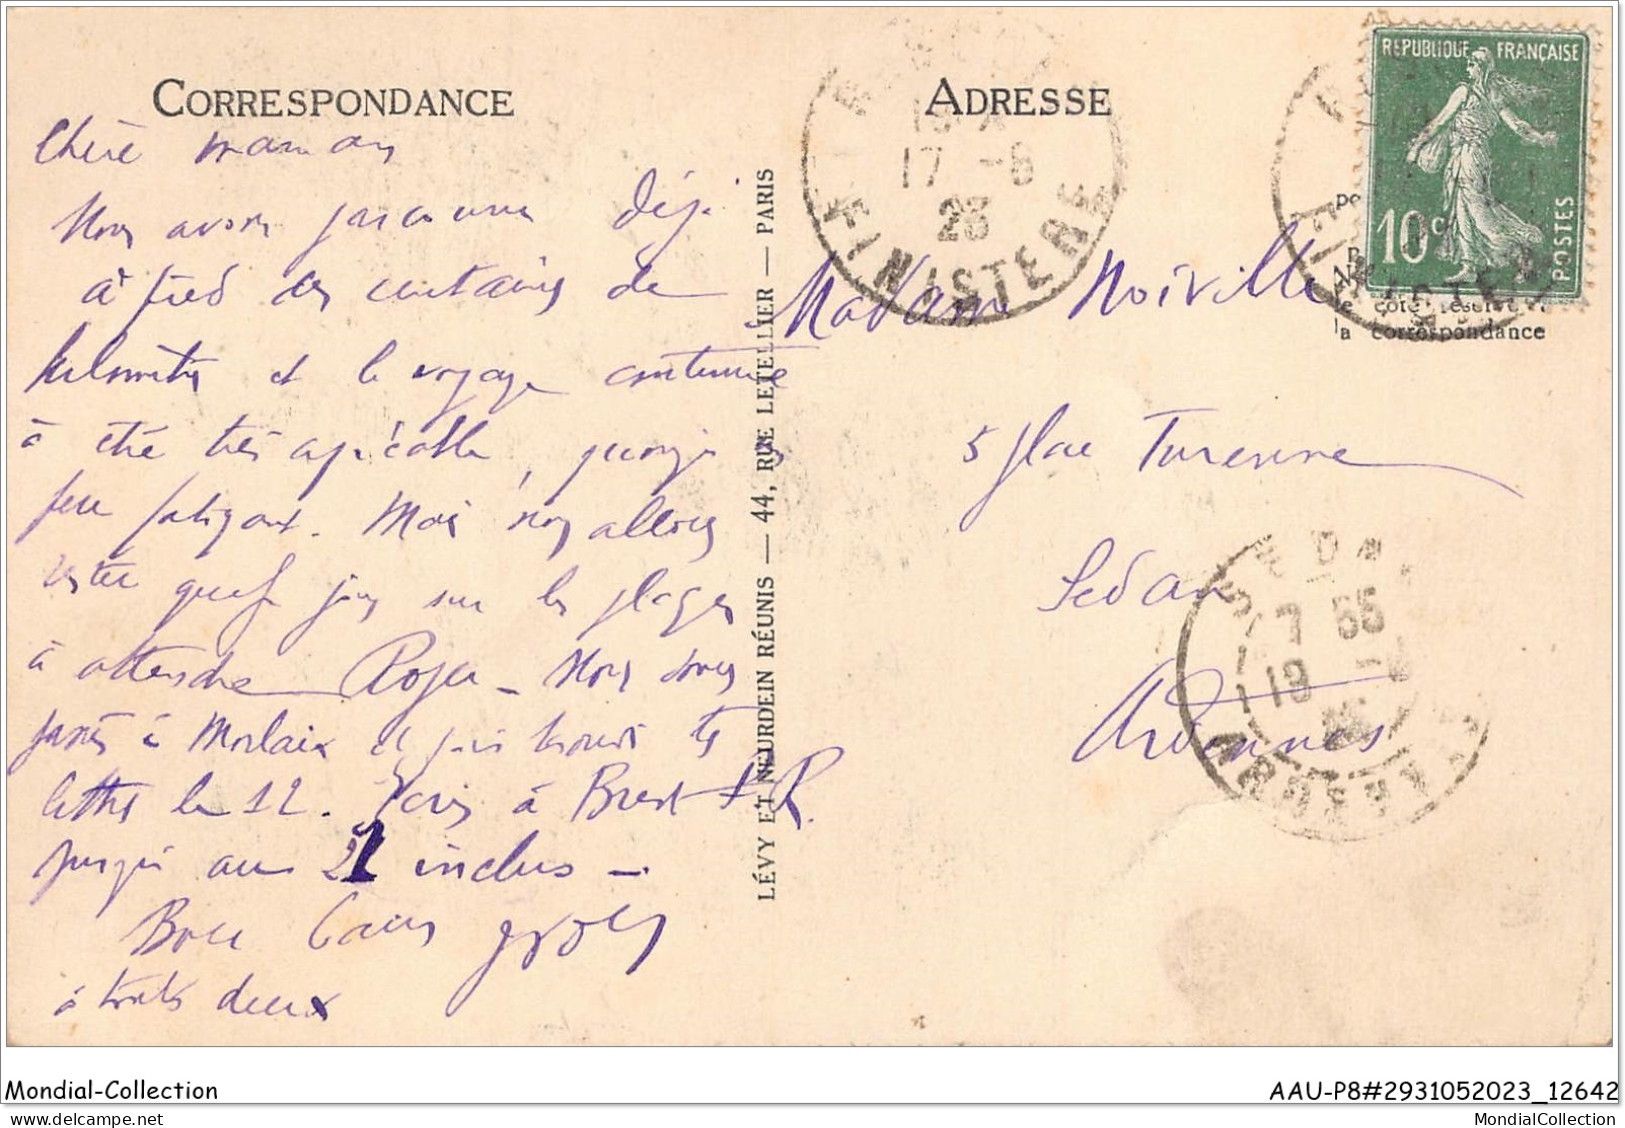 CORRESPONDANCE
Chère maman
Nous avons parcouru déjà
à pied des centaines de
kilomètres et le voyage continue
a été très agréable, jusqu'ici
peu fatigant. Mais nous allons
rester quelq jours sur les plages
à attendre Roger - Nous sommes
passés à Morlaix et pris trouvé tes
lettres le 12. Écris à Brest P.R.
jusqu'au 21 inclus -
Bons baisers
à toutes deux
LÉVY ET NEURDEIN RÉUNIS — 44, RUE LETELLIER — PARIS
ADRESSE
17 -8
23
FINISTERE
REPUBLIQUE FRANÇAISE
10c
POSTES
côté réservé
la correspondance
Madame Noiville
5 place Turenne
Sedan
Ardennes
SEDAN
7 55
19 -8
ARDENNES
Mondial-Collection
AAU-P8#2931052023_12642
MondialCollection